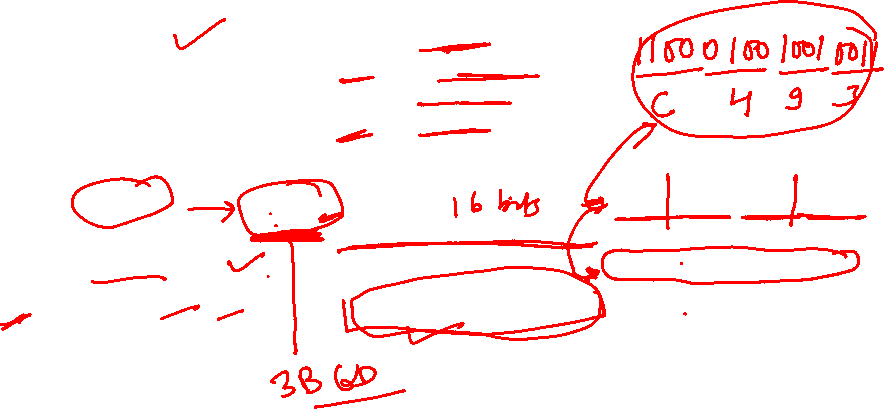 1100 0100 1001 0011
C 4 9 3
16 bits
3B 6D